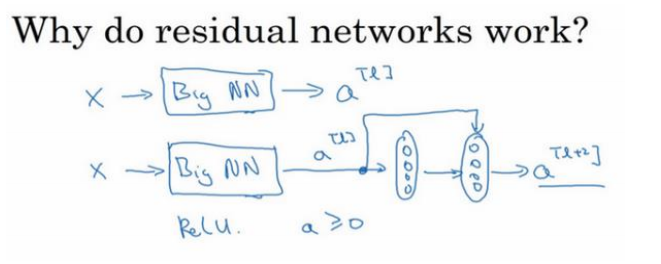 Why do residual networks work?
X → Big NN → a^[l]
X → Big NN a^[l] → → a^[l+2]
ReLU. a ≥ 0